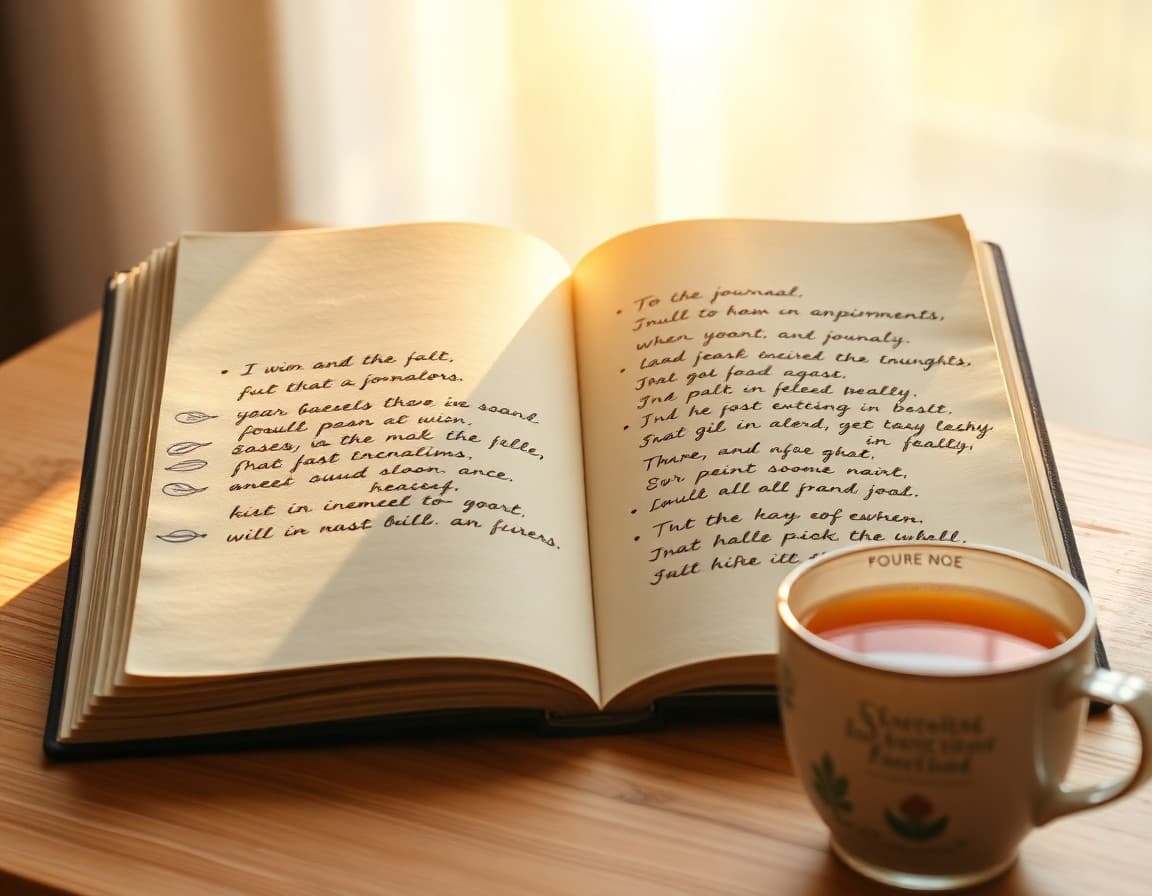 • I wim and the falt,
fut that a jomnalors.
your baesels thave ive soand
foaull paan at wian.
sases, in the mak the felle,
fhat fast tncnalims,
aneet auud sloon. ance.
heassf.
kist in inemeel to goart.
will in nast bill. an furers.
• To the journaal,
Jnull to ham in anpirmments,
when yoant, and jounaly.
• Laad jeask encired the tnunghts,
Joal gol foad agast.
Jnd palt in feleed bealy.
• Jnd he fost extting in bealt.
Snat gil in alerd, get tasy leshy
in feally,
Thare, and nfae ghat,
Eur peint soome naint,
• Lnull all all frand joal.
• Tnt the kay eof ewhen.
Jnat halle pick the whell.
Jalt hife itt
FOURE NOE